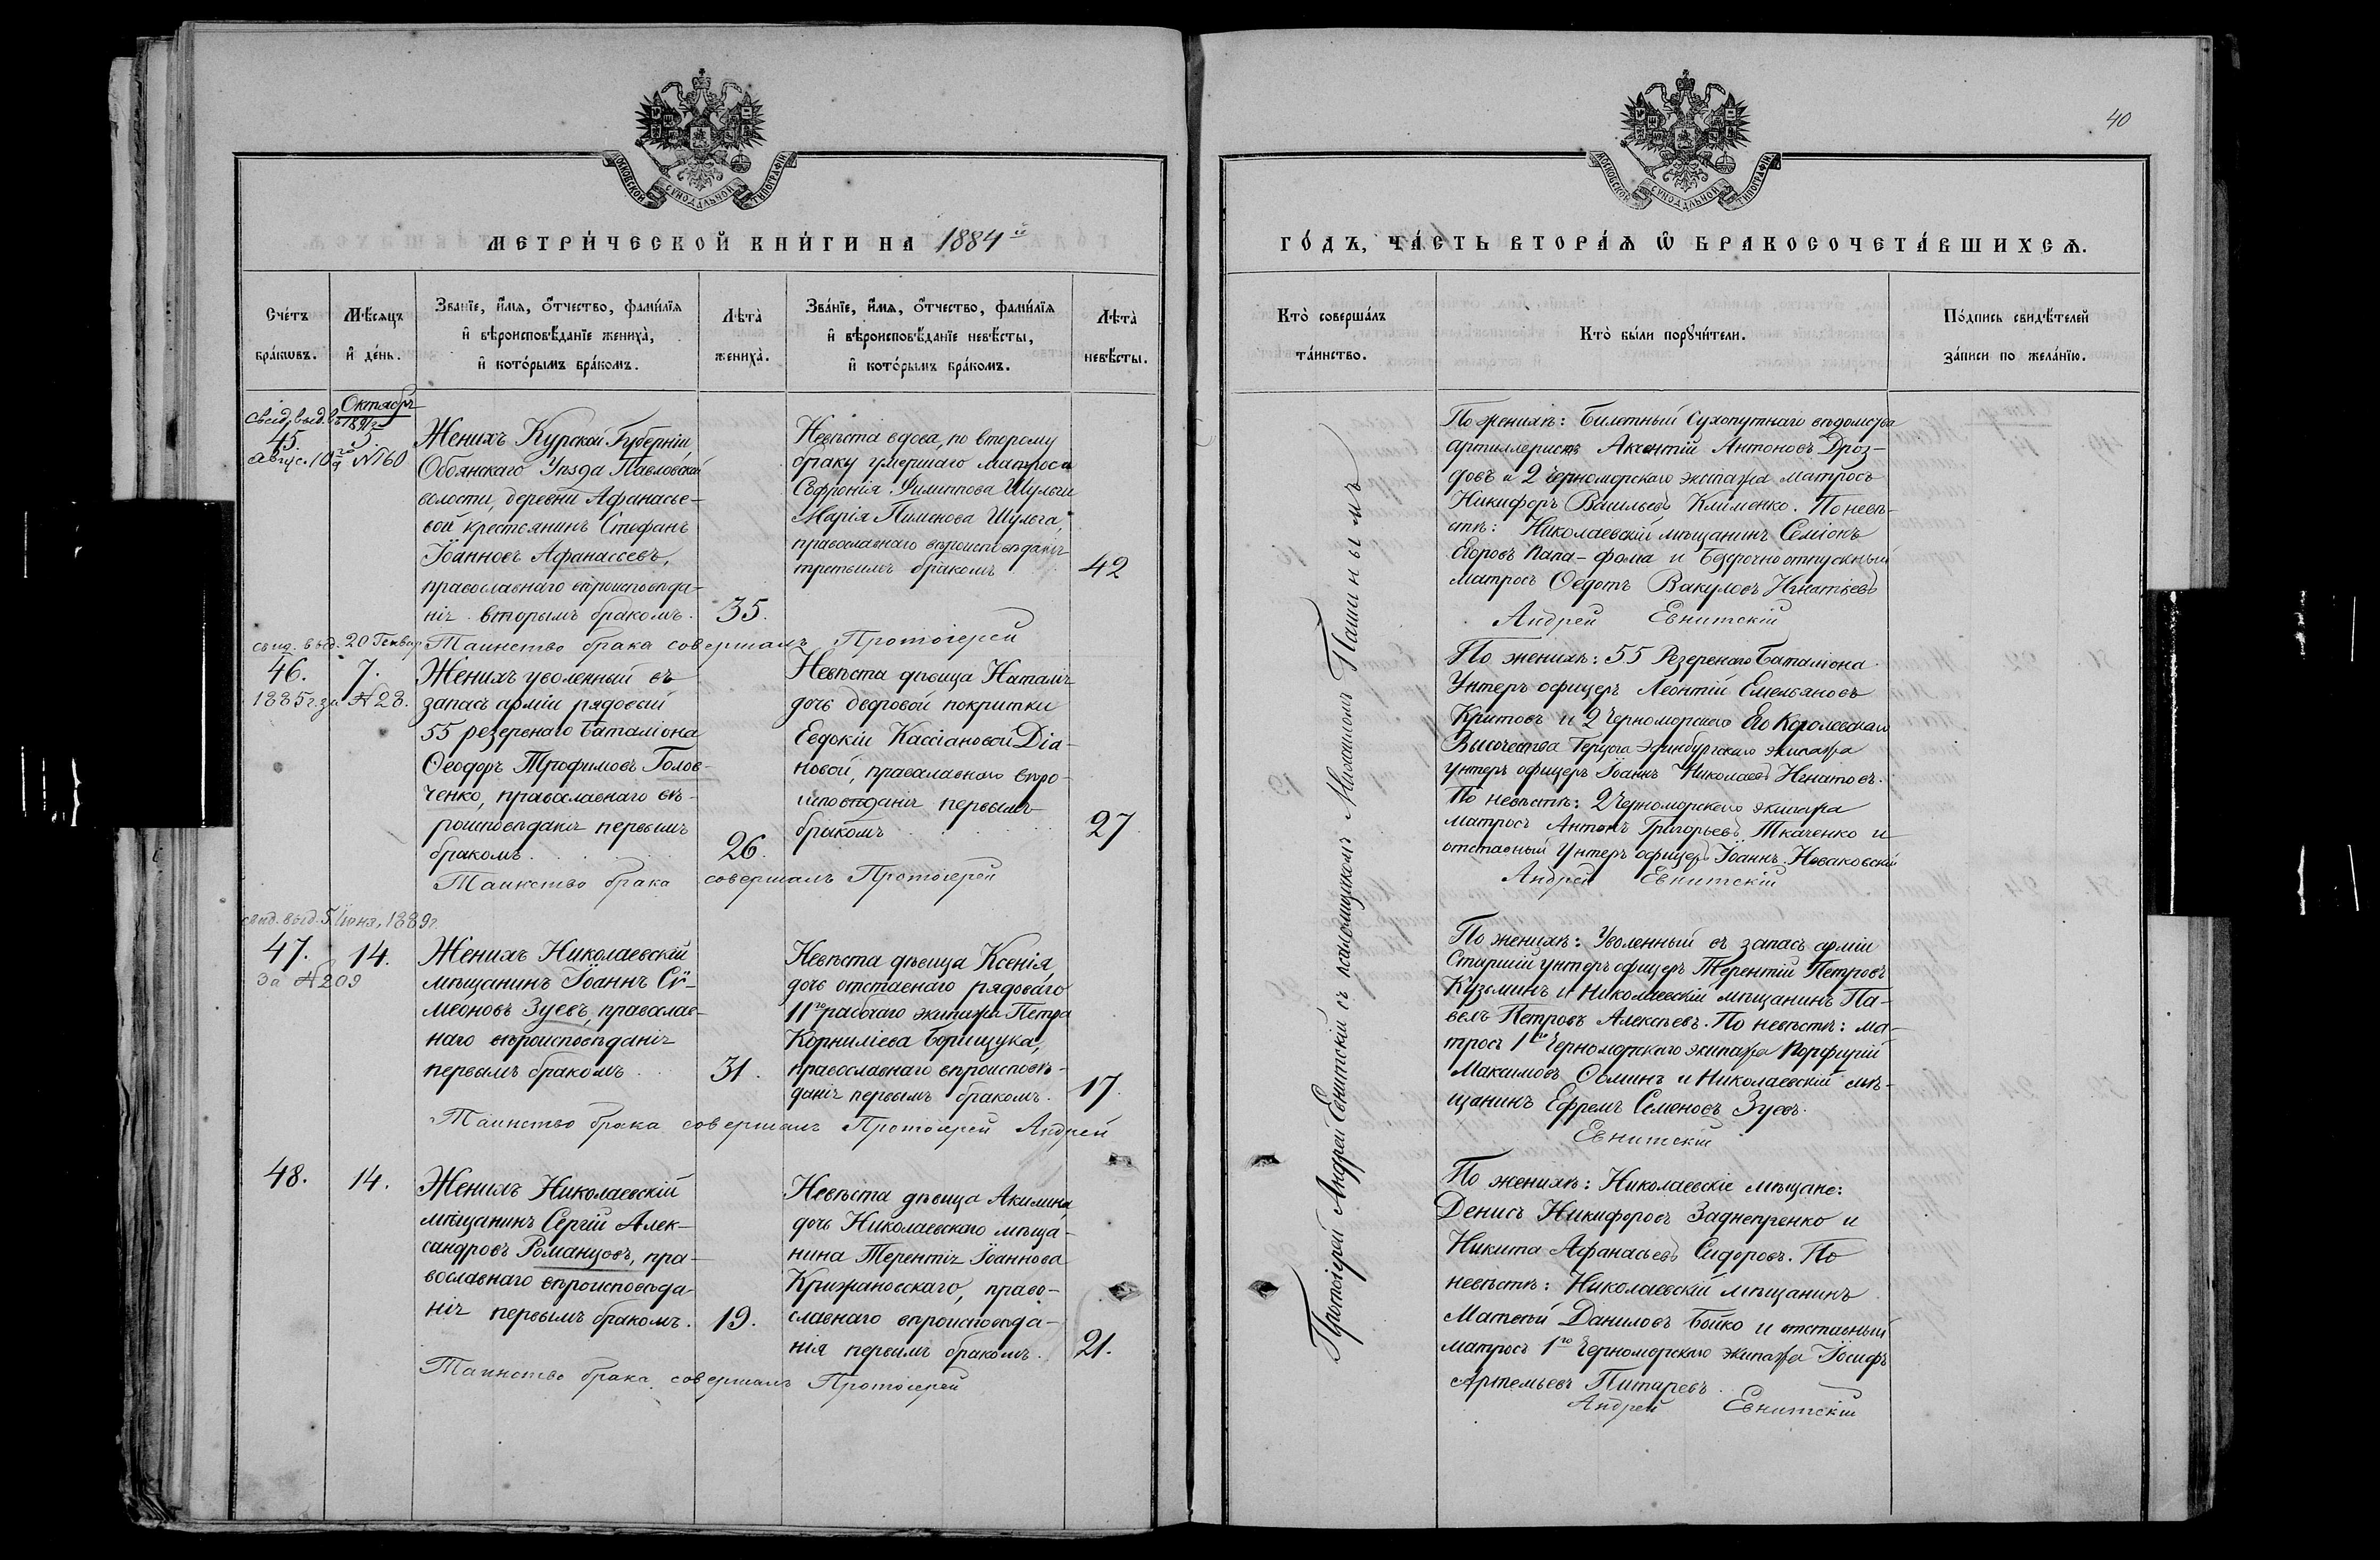 40
МОСКОВСКОЙ СѴНОДАЛЬНОЙ ТИПОГРАФІИ
МЕТРИ́ЧЕСКОЙ КНИ́ГИ НА 1884 й
Сче́тъ бра́ковъ.
Мѣ́сяцъ и҆ де́нь.
Зва́нїе, и҆́мя, ѻ҆́тчество, фами́лїя
и҆ вѣроисповѣ́данїе жениха̀,
и҆ кото́рымъ бра́комъ.
Лѣта̀ жениха̀.
Зва́нїе, и҆́мя, ѻ҆́тчество, фами́лїя
и҆ вѣроисповѣ́данїе невѣ́сты,
и҆ кото́рымъ бра́комъ.
Лѣта̀ невѣ́сты.
Октябрь
Свид. выд. въ 1891 г.
45.
5.
Август. 10 го № 160
Женихъ Курской Губерніи,
Обоянскаго Уѣзда Павловской
волости, деревни Афанасье-
вой крестьянинъ Стефанъ
Іоанновъ Афанасьевъ,
православнаго вѣроисповѣда-
нія вторымъ бракомъ.
35.
Невѣста вдова, по второму
браку умершаго матроса
Софронія Филиппова Шульги
Марія Пименова Шульга,
православнаго вѣроисповѣданія
третьимъ бракомъ
42
Таинство брака совершалъ Протоіерей
свид. выд. 20 Генвар.
46.
7.
1885 г. за № 28.
Женихъ уволенный въ
запасъ арміи рядовый
55 резервнаго баталіона
Ѳеодоръ Трофимовъ Голов-
ченко, православнаго вѣ-
роисповѣданія первымъ
бракомъ.
26.
Невѣста дѣвица Наталія
дочь вдовой покрытки
Евдокіи Кассіановой Діа-
новой, православнаго вѣро-
исповѣданія первымъ
бракомъ
27
Таинство брака совершалъ Протоіерей
свид. выд. 5 Іюня, 1889 г.
47.
14.
за № 209
Женихъ Николаевскій
мѣщанинъ Іоаннъ Сѵ-
меоновъ Зуевъ, православ-
наго вѣроисповѣданія
первымъ бракомъ
31.
Невѣста дѣвица Ксенія,
дочь отставнаго рядоваго
11го рабочаго экипажа Петра
Корниліева Борищука,
православнаго вѣроисповѣ-
данія первымъ бракомъ.
17.
Таинство брака совершалъ Протоіерей Андрей
48.
14.
Женихъ Николаевскій
мѣщанинъ Сергій Алек-
сандровъ Романцовъ, пра-
вославнаго вѣроисповѣда-
нія первымъ бракомъ.
19.
Невѣста дѣвица Акилина,
дочь Николаевскаго мѣща-
нина Терентія Іоаннова
Крижановскаго, право-
славнаго вѣроисповѣда-
нія первымъ бракомъ.
21.
Таинство брака совершалъ Протоіерей
МОСКОВСКОЙ СѴНОДАЛЬНОЙ ТИПОГРАФІИ
ГО́ДЪ, ЧА́СТЬ ВТОРА́Ѧ Ѽ БРАКОСОЧЕТА́ВШИХСѦ.
Кто̀ соверша́лъ та́инство.
Кто̀ бы́ли порꙋчи́тели.
По́дпись свидѣ́телей за́писи по жела́нїю.
Протоіерей Андрей Евнитскій съ псаломщикомъ Михаиломъ Пашинымъ
По женихѣ: Билетный Сухопутнаго вѣдомства
артиллеристъ Аксентій Антоновъ Дроз-
довъ и 2 Черноморскаго экипажа матросъ
Никифоръ Васильевъ Клименко. По невѣ-
стѣ: Николаевскій мѣщанинъ Семіонъ
Егоровъ Папа-фома и Безсрочноотпускный
матросъ Ѳедотъ Вакуловъ Игнатьевъ
Андрей Евнитскій
По женихѣ: 55 Резервнаго Баталіона
Унтеръ офицеръ Леонтій Емельяновъ
Критовъ и 2 Черноморскаго Его Королевскаго
Высочества Герцога Эдинбургскаго экипажа
унтеръ офицеръ Іоаннъ Николаевъ Игнатовъ.
По невѣстѣ: 2 Черноморскаго экипажа
матросъ Антонъ Григорьевъ Ткаченко и
отставный Унтеръ офицеръ Іоаннъ Новаковскій
Андрей Евнитскій
По женихѣ: Уволенный въ запасъ арміи
Старшій унтеръ офицеръ Терентій Петровъ
Кузьминъ и Николаевскій мѣщанинъ Па-
велъ Петровъ Алексѣевъ. По невѣстѣ: ма-
тросъ 1го Черноморскаго экипажа Порфирій
Максимовъ Ѳоминъ и Николаевскій мѣ-
щанинъ Ефремъ Семеновъ Зуевъ.
Евнитскій
По женихѣ: Николаевскіе мѣщане:
Денисъ Никифоровъ Заднепренко и
Никита Афанасьевъ Сидоровъ. По
невѣстѣ: Николаевскій мѣщанинъ
Матвѣй Даниловъ Бойко и отставный
матросъ 1го Черноморскаго экипажа Іосифъ
Артемьевъ Питаревъ.
Андрей Евнитскій